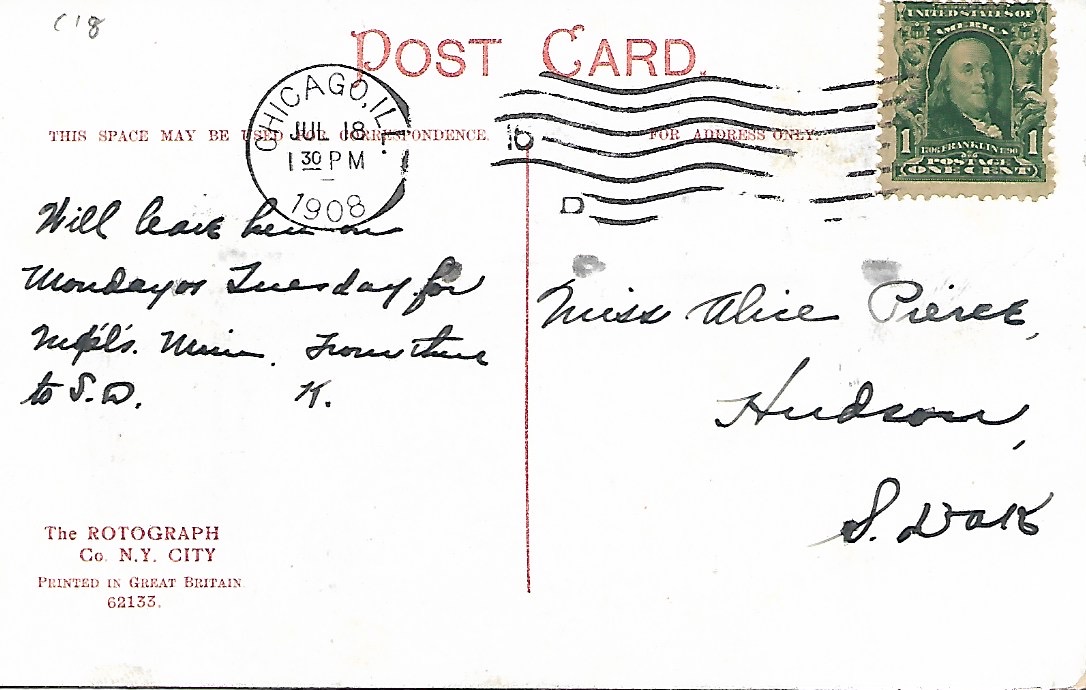 C18
POST CARD.
THIS SPACE MAY BE USED FOR CORRESPONDENCE.
FOR ADDRESS ONLY.
CHICAGO, ILL.
JUL 18
1 30 PM
1908
D
UNITED STATES OF
AMERICA
1706 FRANKLIN 1790
1 POSTAGE 1
ONE CENT
Will leave here on
Monday or Tuesday for
Mpl's. Minn. From there
to S.D. K.
Miss Alice Pierce,
Hudson,
S. Dak
The ROTOGRAPH
Co. N.Y. CITY
PRINTED IN GREAT BRITAIN
62133.